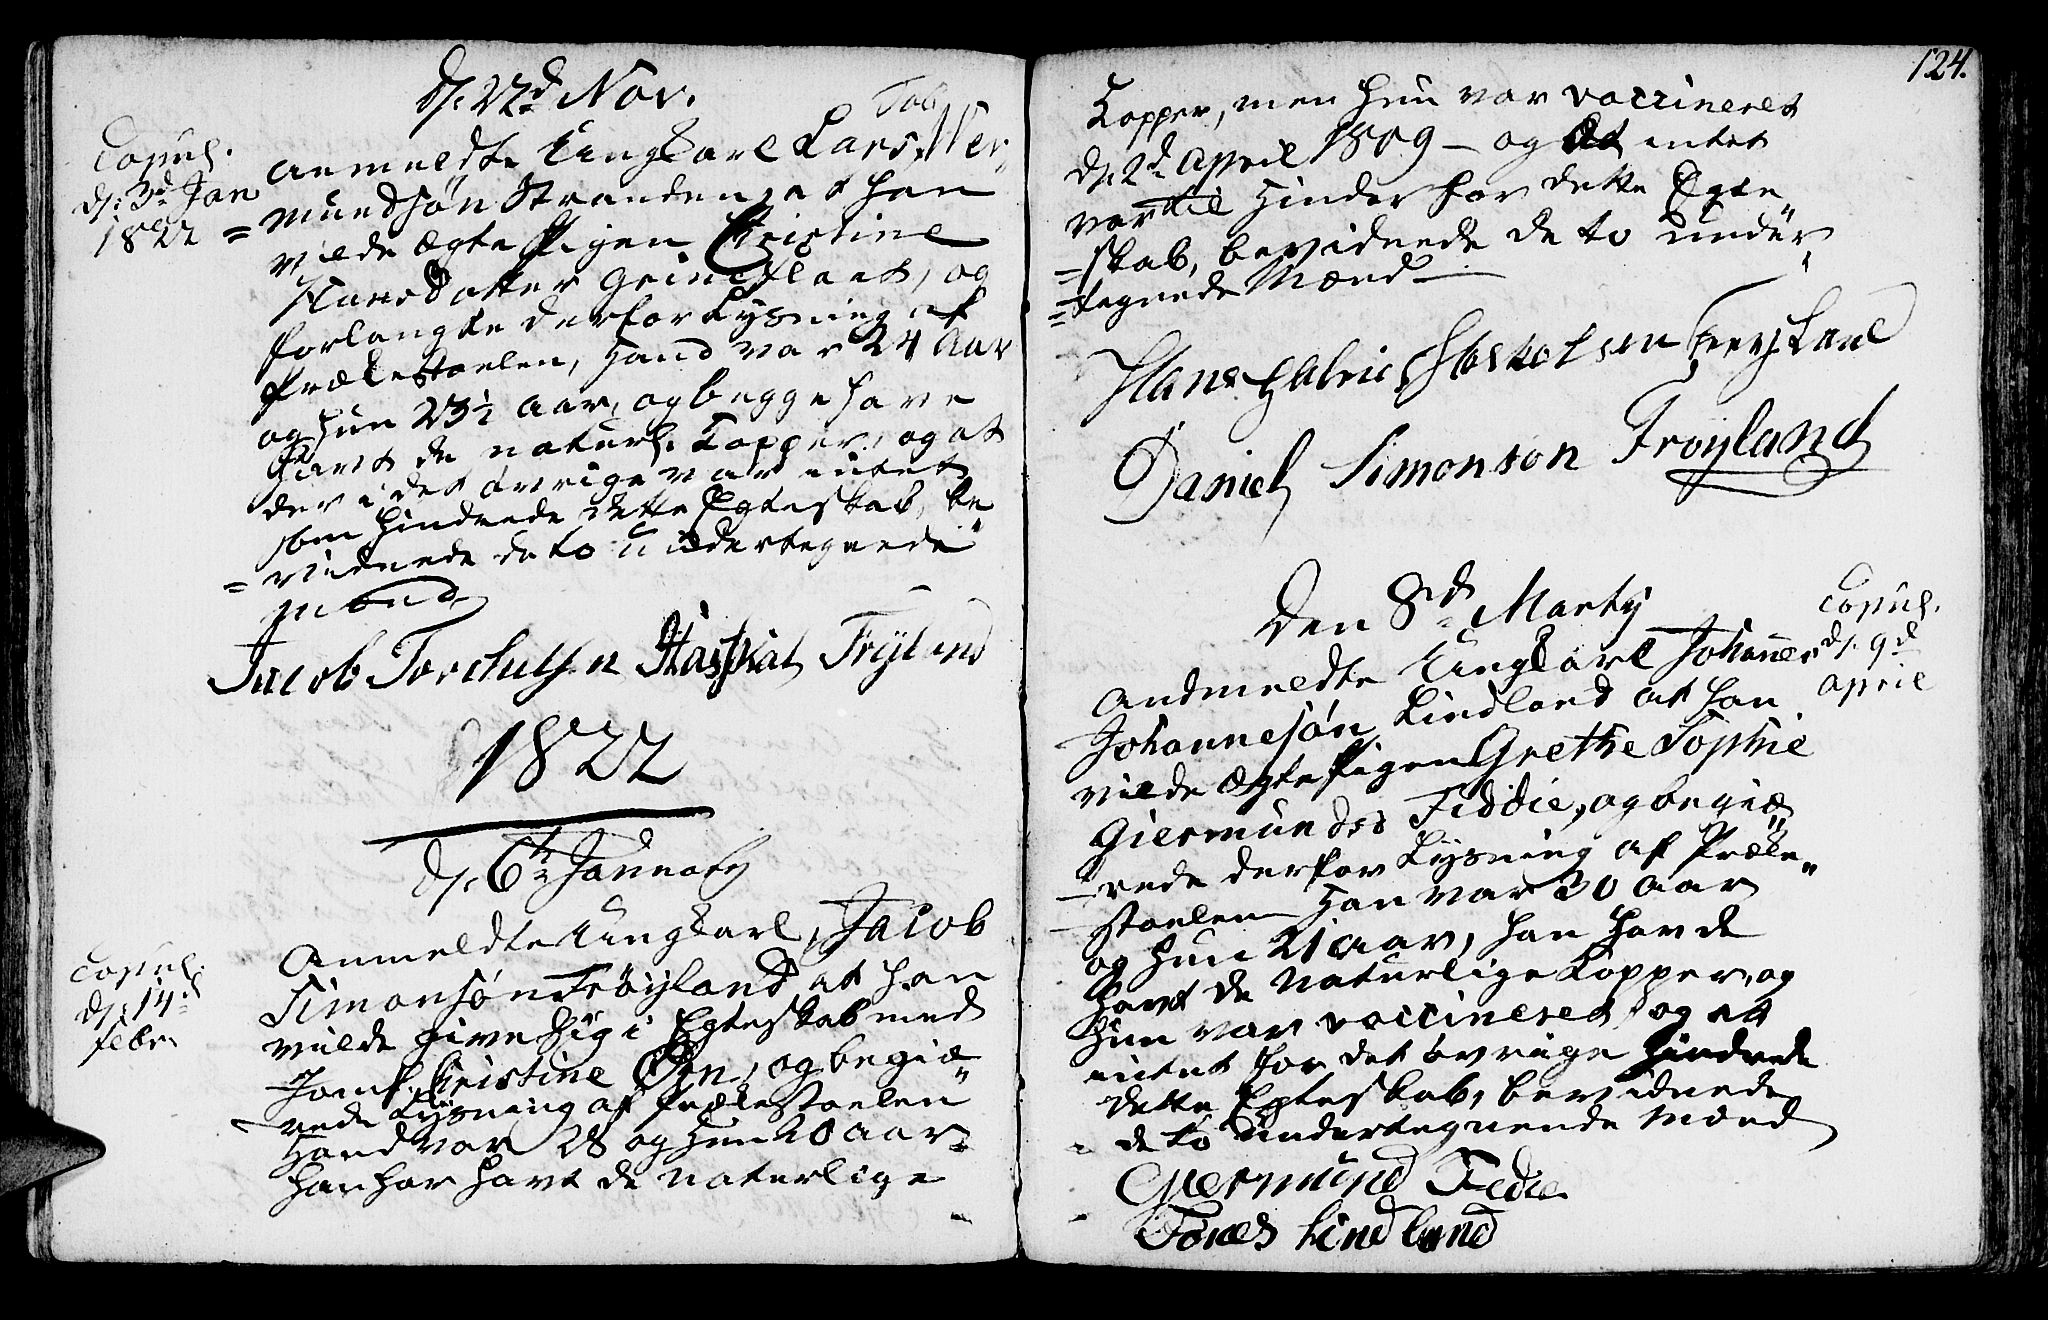 d: 22d Nov.
Copul.
d: 3d Jan
1822
anmeldte Ungkarl Lars Wer„
=mundsøn Stranden, at han
vilde ægte Pigen Christine
Hansdatter Grindflaat, og
forlangte derfor Lysning af
Prækestoelen, Hand var 24 Aar
og hun 23½ Aar, og begge have
havt de naturl. Kopper, og at
der i det øvrige var intet
som hindrede dette Egteskab, be„
=vidnede de to undertegnede
Mænd
Jacob Torchulsen Haskat Frylund
1822
d: 6te Januaty
Copul.
d: 14d
Febr.
Anmeldte Ungkarl, Jacob
Simonsøn Frøyland at han
vilde give sig i Egteskab med
Jomf. Christine Øen, og begiæ„
rede Lysning af Prækestoelen
Hand var 28 og Hun 20 Aar
han har havt de naturlige
124.
Kopper, men hun var vaccineret
d: 2d April 1809 – og at intet
var til Hinder for dette Egte„
=skab, bevidnede de to under„
=tegnede Mænd
Hans Fryland
Daniel Simonson Frøyland
Den 8d Marty
Copul.
d: 9d
April
Andmeldte Ungkarl Johannes
Johannesøn Lindland at han
vilde ægte Pigen Grethe Sophie
Giermunds Feddie, og begiæ„
=rede derfor Lysning af Præke„
stoelen Han var 30 Aar
og Hun 21 Aar, han havde
havt de naturlige Kopper, og
Hun var vaccineret, og at
intet for det øvrige hindrede
dette Egteskab, bevidnede
de to undertegnende Mænd
Giermund Fedie
Tønes Lindland